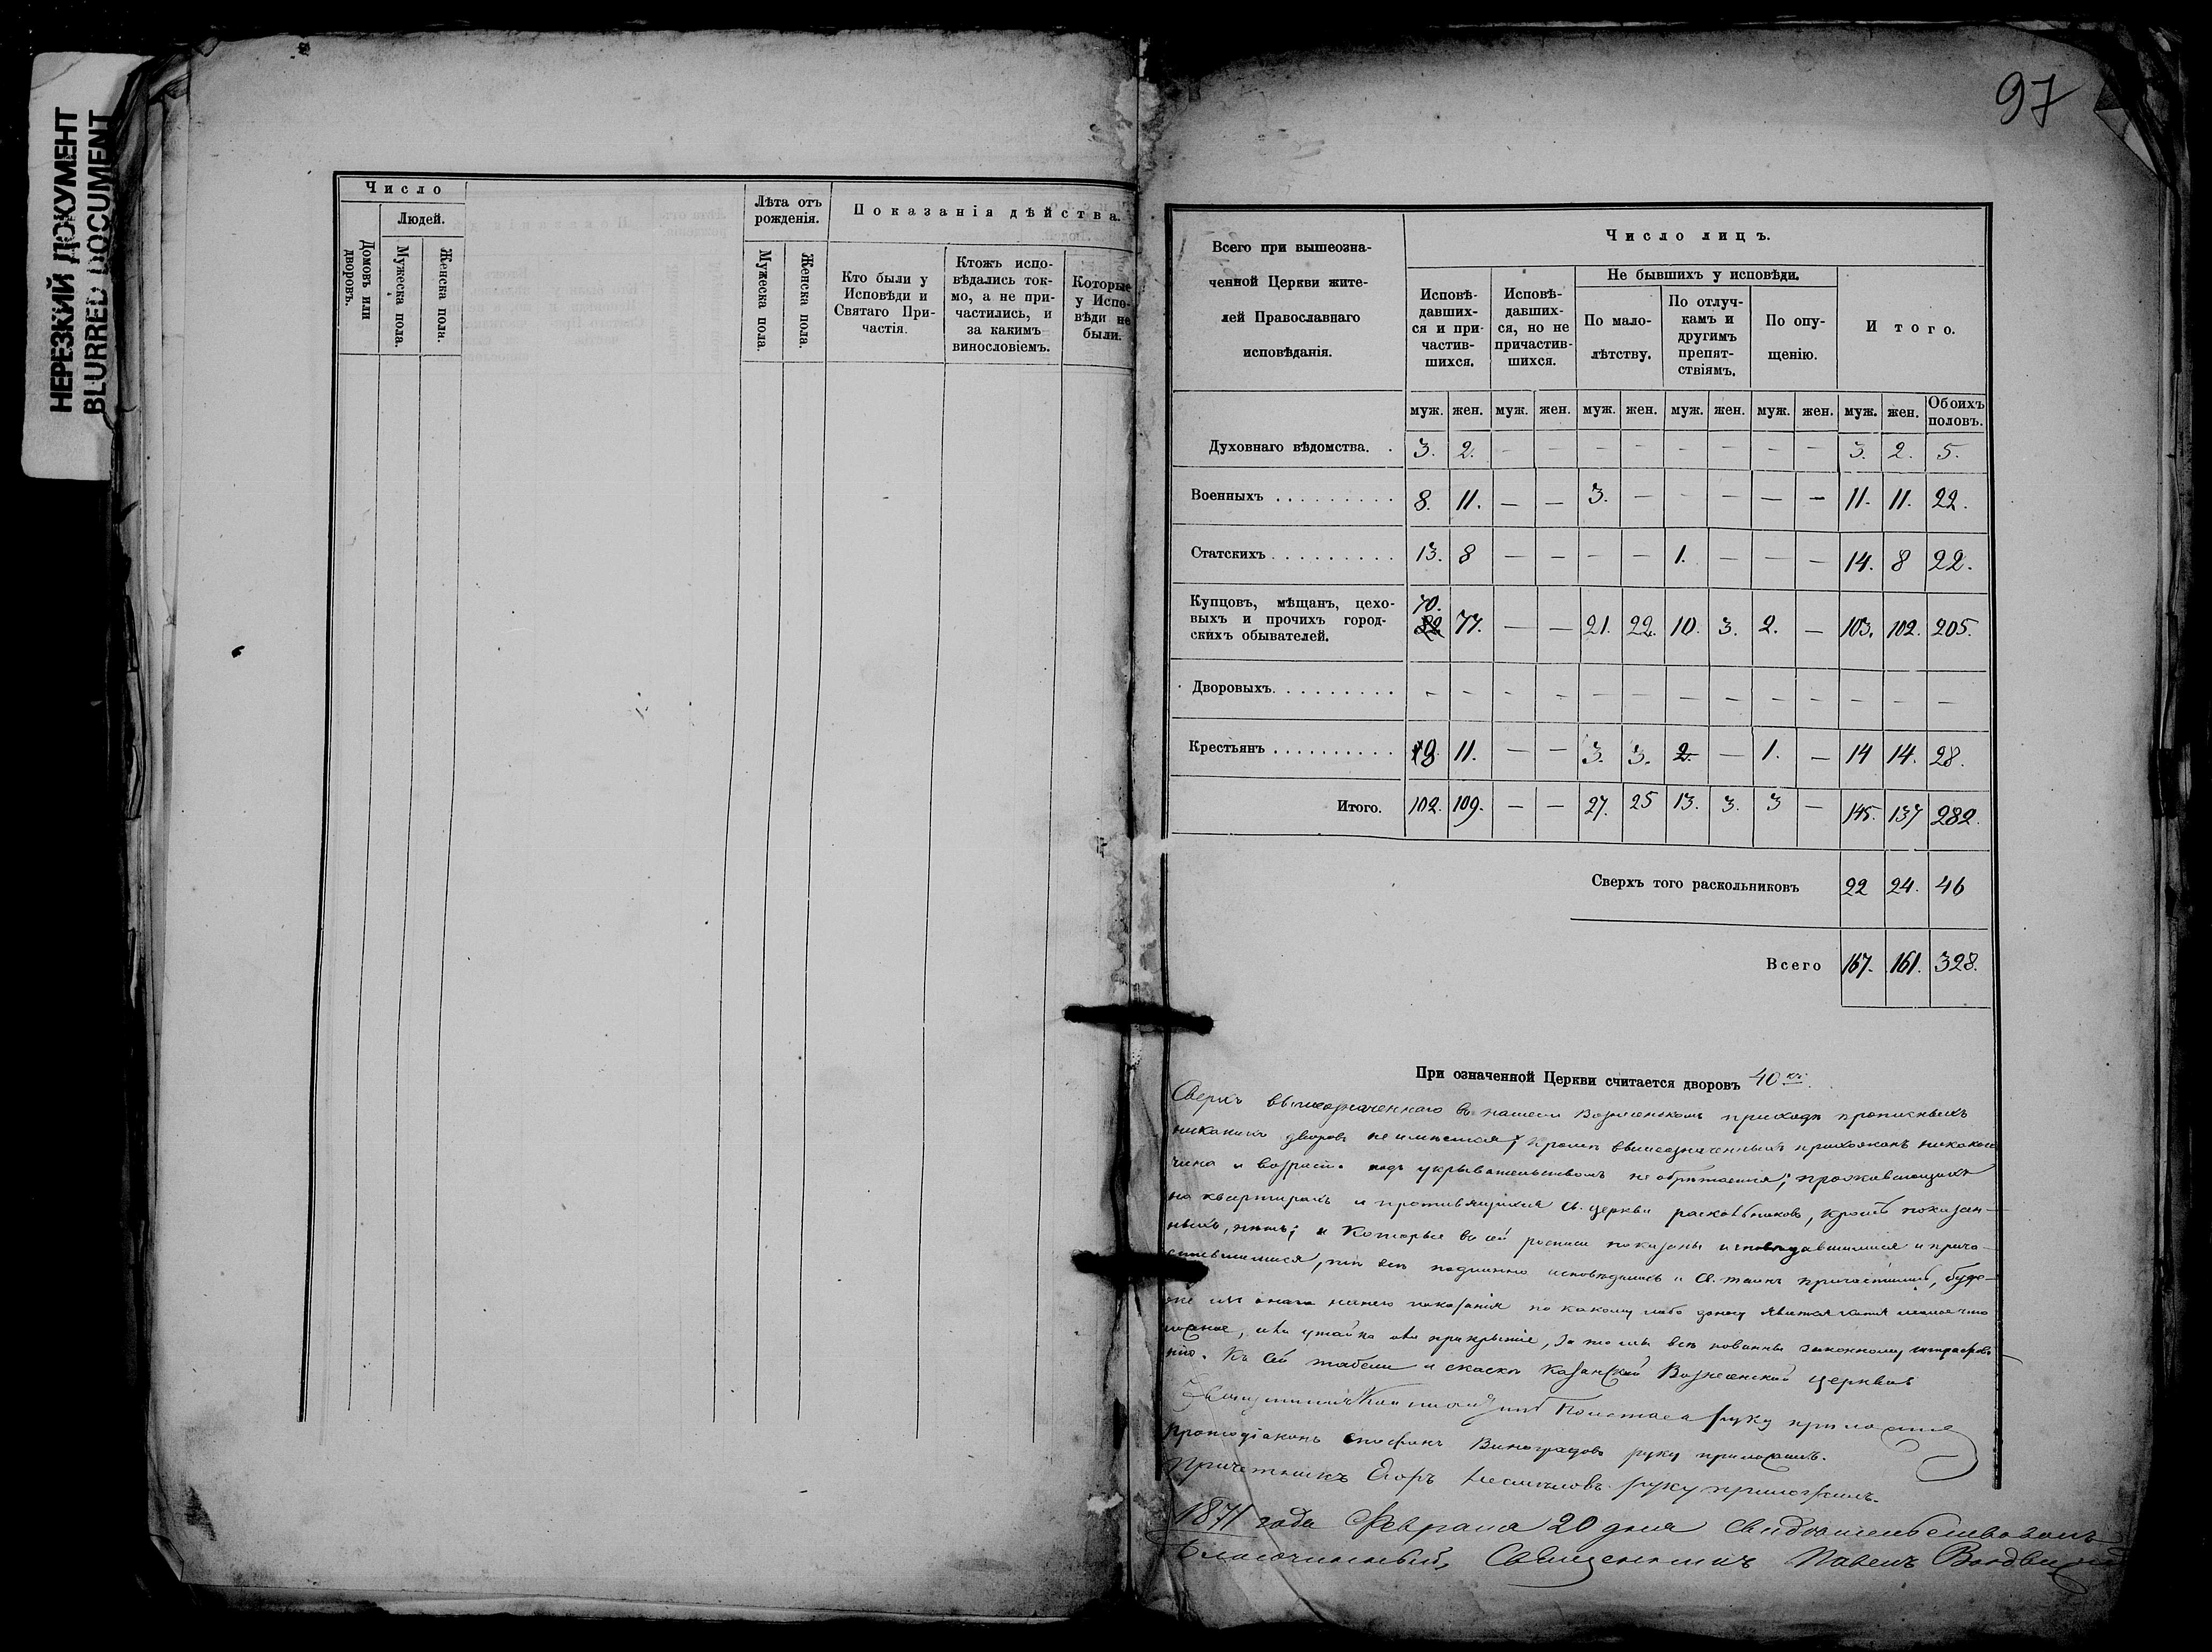 НЕРЕЗКИЙ ДОКУМЕНТ
BLURRED DOCUMENT
Число
Людей.
Домовъ или дворовъ.
Мужеска пола.
Женска пола.
Лѣта отъ рожденія.
Мужеска пола.
Женска пола.
Показанія дѣйства.
Кто были у Исповѣди и Святаго Причастія.
Ктожъ исповѣдались токмо, а не причастились, и за какимъ винословіемъ.
Которые у Исповѣди не были.
97
Всего при вышеозна-
ченной Церкви жите-
лей Православнаго
исповѣданія.
Число лицъ.
Исповѣ-давших-ся и при-частив-шихся.
Исповѣ-давших-ся, но не причастив-шихся.
Не бывшихъ у исповѣди.
По мало-лѣтству.
По отлуч-камъ и другимъ препят-ствіямъ.
По опу-щенію.
Итого.
муж. жен. муж. жен. муж. жен. муж. жен. муж. жен. муж. жен. Обоихъ половъ.
Духовнаго вѣдомства. 3. 2. — — — — — — — — 3. 2. 5.
Военныхъ 8. 11. — — 3. — — — — — 11. 11. 22.
Статскихъ 13. 8 — — — — 1. — — — 14. 8 22.
Купцовъ, мѣщанъ, цехо-
выхъ и прочихъ город-
скихъ обывателей. 70. 77. — — 21. 22. 10. 3. 2. — 103. 102. 205.
Дворовыхъ — — — — — — — — — — — — —
Крестьянъ 8 11. — — 3. 3. 2. — 1. — 14 14. 28.
Итого. 102. 109. — — 27. 25 13. 3. 3 — 145. 137 282.
Сверхъ того раскольниковъ 22 24. 46
Всего 167. 161. 328.
При означенной Церкви считается дворовъ 40
Сверхъ вышеозначеннаго въ нашемъ Вознесенскомъ приходѣ прописныхъ
никакихъ дворовъ не имѣется, кромѣ вышеозначенныхъ прихожанъ никакого
чина и возраста подъ укрывательствомъ не обрѣтается; проживающихъ
на квартирахъ и противящихся Св. церкви раскольниковъ, кромѣ показан-
ныхъ, нѣтъ; и которые въ сей росписи показаны исповѣдавшимися и прича-
стившимися, тѣ всѣ подлинно исповѣдались и Св. таинъ причастились, буде-
же изъ онаго нашего показанія по какому либо доносу явится хотя малое что
ложное, или утайка или прикрытіе, за то мы всѣ повинны законному штрафова-
нію. Къ сей табели и сказкѣ Казанской Вознесенской церкви
руку приложилъ
протодіаконъ Виноградовъ руку приложилъ.
Причетникъ Егоръ руку приложилъ.
1871 года Февраля 20 дня свидѣтельствовалъ
Благочинный, Священникъ Павелъ